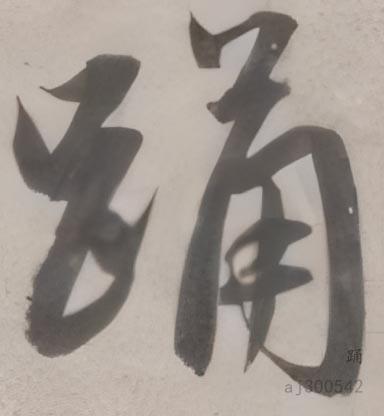 踊
踊
aj300542